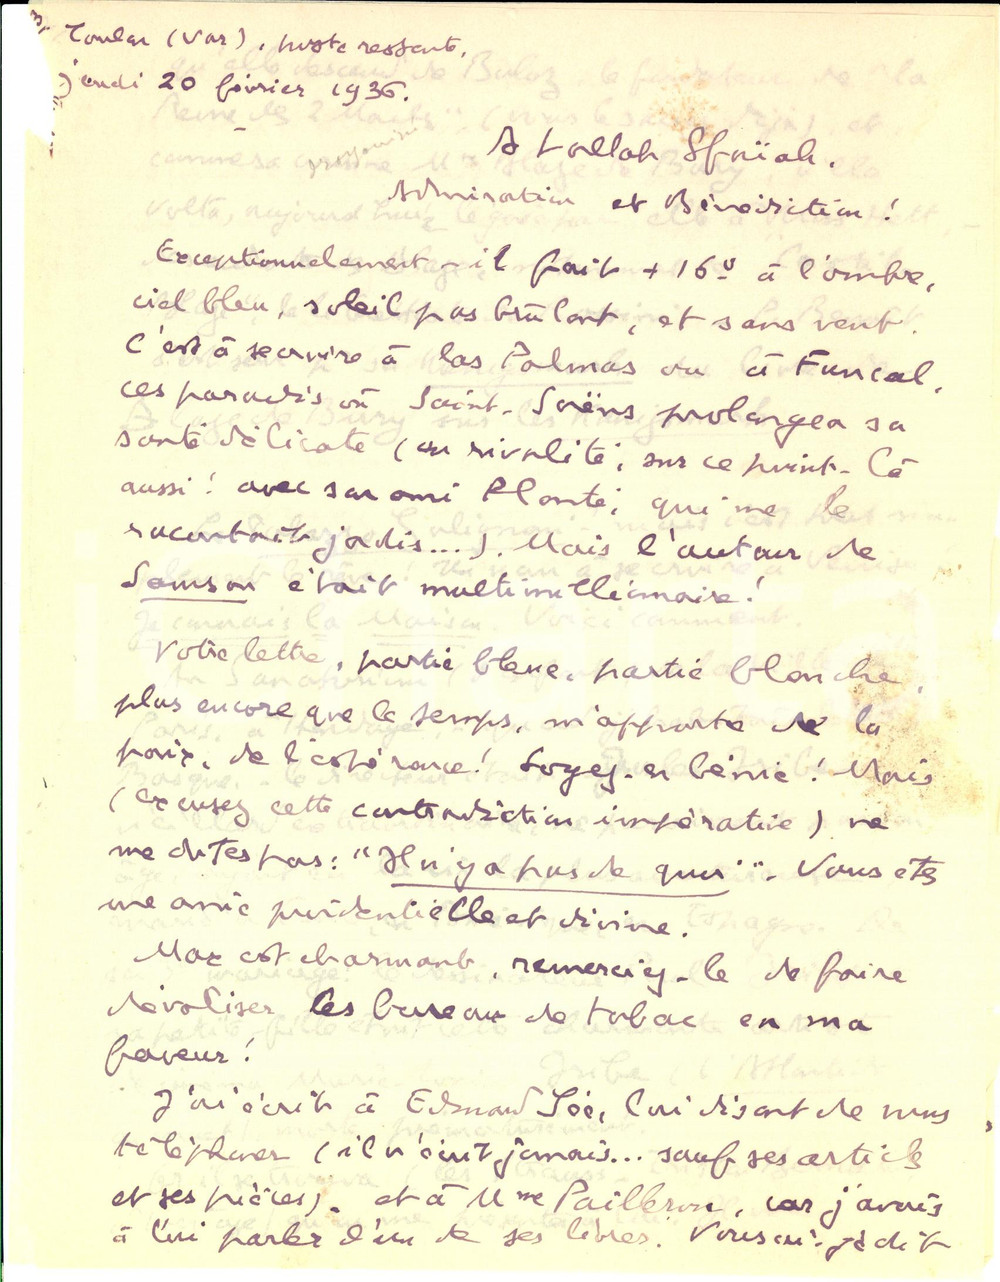 Toulon (Var), poste restante,
jeudi 20 février 1936.
Admiration et Bénédiction !
Exceptionnelement - il fait + 16° à l'ombre,
ciel bleu, soleil pas brûlant, et sans vent.
C'est à se croire à Las Palmas ou à Funcal,
ces paradis où Saint-Saëns prolongea sa
santé délicate (en rivalité, sur ce point-là
aussi ! avec son ami Planté, qui me le
racontait jadis...). Mais l'auteur de
Samson était multimillionnaire !
Votre lettre, partie bleue, partie blanche,
plus encore que le temps, m'apporte de la
paix, de l'espérance ! Soyez-en bénie ! Mais
(excusez cette contradiction impérative) ne
me dites pas : "Il n'y a pas de quoi". Vous êtes
une amie providentielle et divine.
Max est charmant, remerciez-le de faire
dévaliser les bureaux de tabac en ma
faveur !
J'ai écrit à Edmond Sée, lui disant de vous
téléphoner (il n'écrit jamais... sauf ses articles
et ses pièces). et à Mme Pailleron, car j'avais
à lui parler d'un de ses livres. Vous ai-je dit